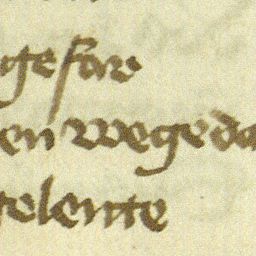 gefar
en wege da
telente